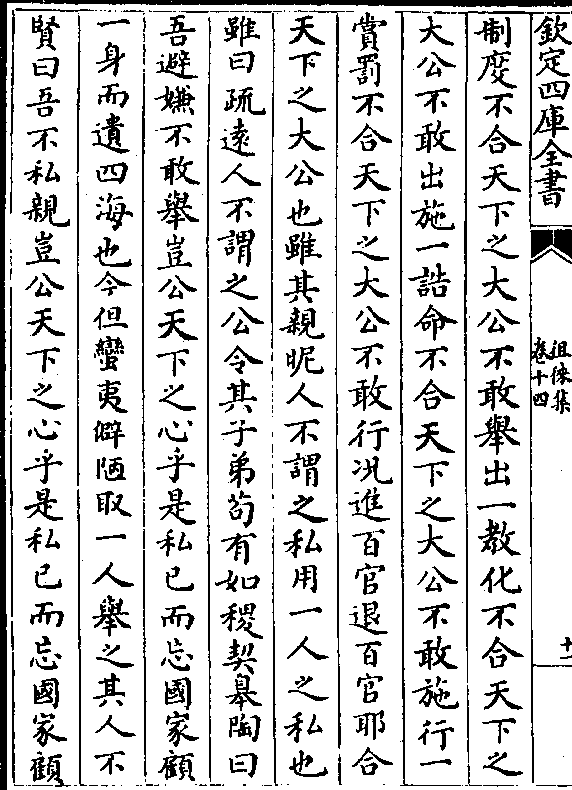 欽定四庫全書
徂徠集
卷十四
十一
制度不合天下之大公不敢舉出一教化不合天下之
大公不敢出施一誥命不合天下之大公不敢施行一
賞罰不合天下之大公不敢行况進百官退百官耶合
天下之大公也雖其親昵人不謂之私用一人之私也
雖曰疏遠人不謂之公令其子弟茍有如稷契皋陶曰
吾避嫌不敢舉豈公天下之心乎是私已而忘國家顧
一身而遺四海也今但蠻夷僻陋取一人舉之其人不
賢曰吾不私親豈公天下之心乎是私已而忘國家顧